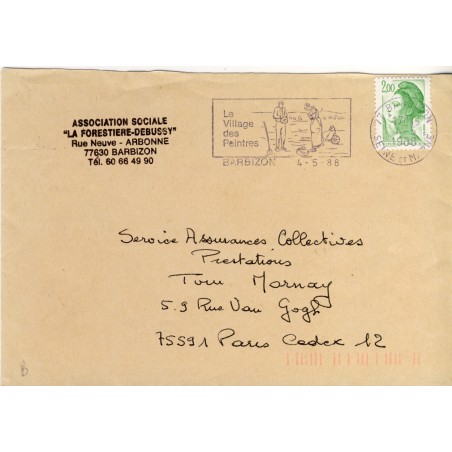 ASSOCIATION SOCIALE
"LA FORESTIERE-DEBUSSY"
Rue Neuve - ARBONNE
77630 BARBIZON
Tél. 60 66 49 90
La
Village
des
Peintres
BARBIZON 4-5-88
2,00
Service Assurances Collectives
Prestations
Tour Mornay
5.9 Rue Van Gogh
75591 Paris Cedex 12
B